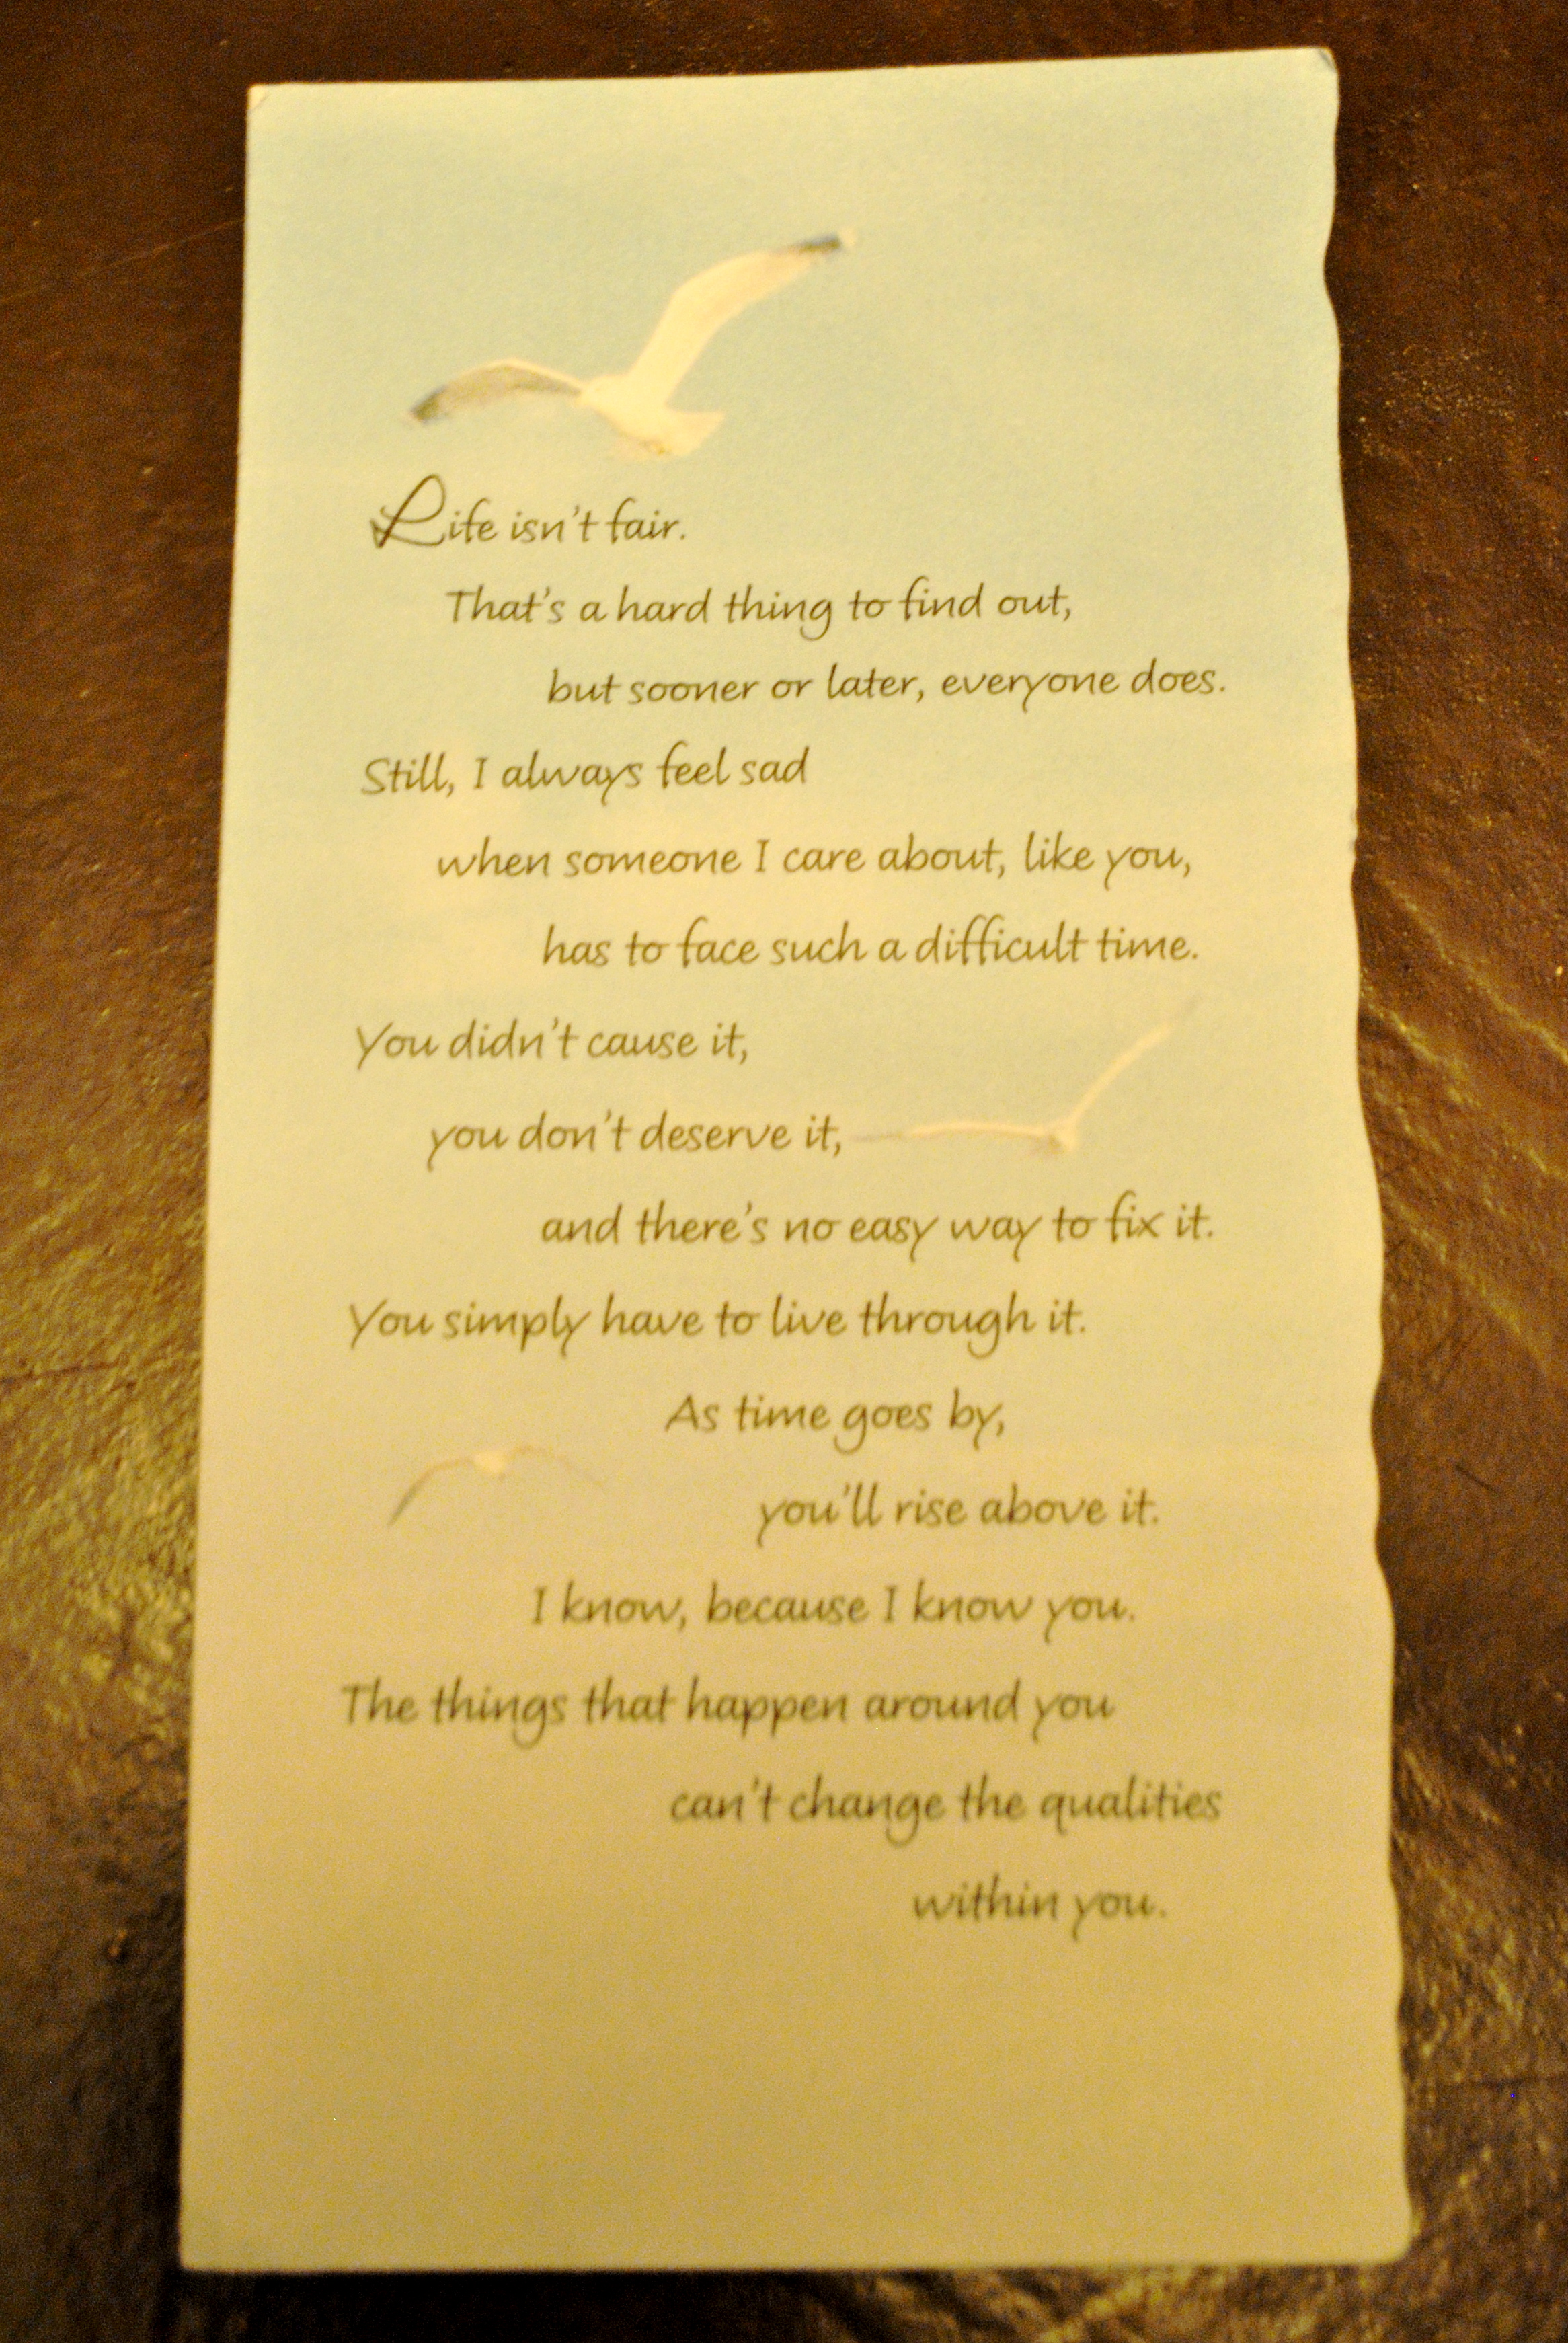 Life isn't fair.
That's a hard thing to find out,
but sooner or later, everyone does.
Still, I always feel sad
when someone I care about, like you,
has to face such a difficult time.
You didn't cause it,
you don't deserve it,
and there's no easy way to fix it.
You simply have to live through it.
As time goes by,
you'll rise above it.
I know, because I know you.
The things that happen around you
can't change the qualities
within you.